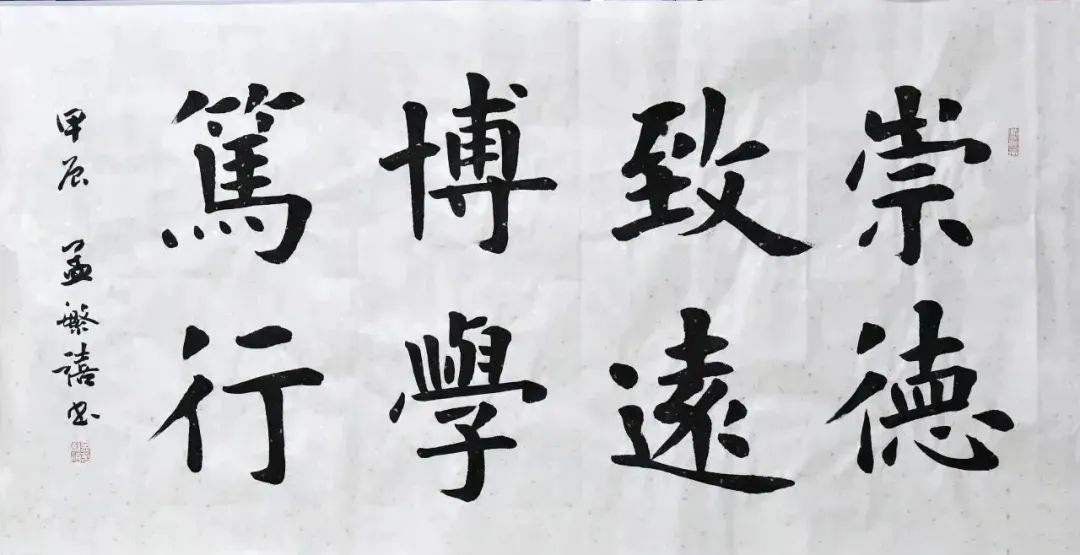 崇德
致遠
博學
篤行
甲辰 孟繁禧書